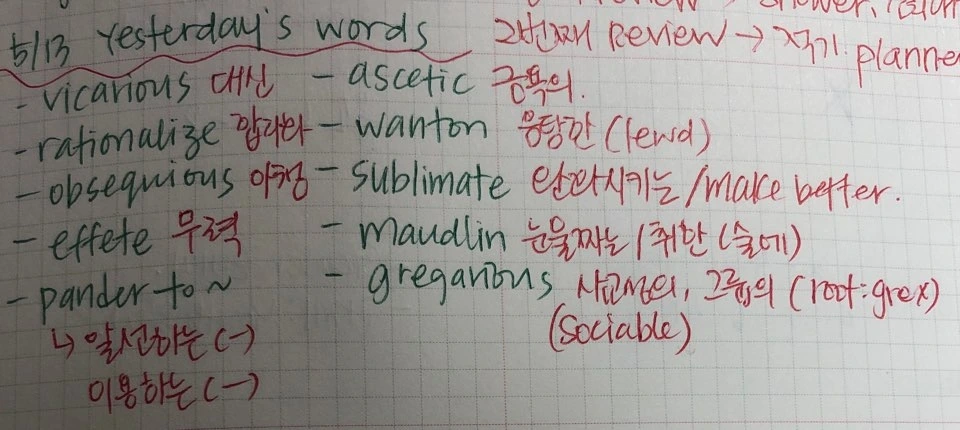 5/13 Yesterday's words 2번째 Review → 적기. planne
- vicarious 대신 - ascetic 금욕의.
- rationalize 합리화 - wanton 음탕한 (lewd)
- obsequious 아첨 - sublimate 승화시키는 /make better.
- effete 무력 - maudlin 눈물짜는 / 취한 (술에)
- pander to ~ - gregarious 사교성의, 그룹의 (root: grex)
↳ 알선하는 (-) (sociable)
이용하는 (-)